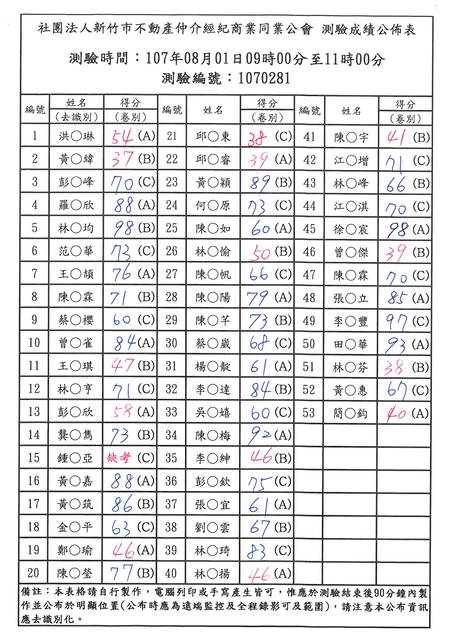 社團法人新竹市不動產仲介經紀商業同業公會 測驗成績公佈表
測驗時間：107年08月01日09時00分至11時00分
測驗編號：1070281
編號 姓名(去識別) 得分(卷別) 編號 姓名(去識別) 得分(卷別) 編號 姓名(去識別) 得分(卷別)
1 洪○琳 54 (A) 21 邱○東 38 (C) 41 陳○宇 41 (B)
2 黃○緯 37 (B) 22 邱○睿 39 (A) 42 江○增 71 (C)
3 彭○峰 70 (C) 23 黃○穎 89 (B) 43 林○峰 66 (B)
4 羅○欣 88 (A) 24 何○原 73 (C) 44 江○淇 70 (C)
5 林○均 98 (B) 25 陳○如 60 (A) 45 徐○宸 98 (A)
6 范○華 73 (C) 26 林○愉 50 (B) 46 曾○傑 39 (B)
7 王○頡 76 (A) 27 陳○帆 66 (C) 47 陳○霖 70 (C)
8 陳○霖 71 (B) 28 陳○陽 79 (A) 48 張○立 85 (A)
9 蔡○櫻 60 (C) 29 陳○芊 73 (B) 49 李○豐 97 (C)
10 曾○雀 84 (A) 30 蔡○崴 68 (C) 50 田○華 93 (A)
11 王○琪 47 (B) 31 楊○靛 61 (A) 51 林○芬 38 (B)
12 林○亨 71 (C) 32 李○達 84 (B) 52 黃○惠 67 (C)
13 彭○欣 58 (A) 33 吳○嬉 60 (C) 53 簡○鈞 40 (A)
14 龔○雋 73 (B) 34 陳○梅 92 (A)
15 鍾○亞 缺考 (C) 35 李○紳 46 (B)
16 黃○嘉 88 (A) 36 彭○欽 75 (C)
17 黃○筑 86 (B) 37 張○宜 61 (A)
18 金○平 63 (C) 38 劉○雲 67 (B)
19 鄭○瑜 46 (A) 39 林○琦 83 (C)
20 陳○瑩 77 (B) 40 林○揚 46 (A)
備註：本表格請自行製作，電腦列印或手寫產生皆可，惟應於測驗結束後90分鐘內製
作並公布於明顯位置(公布時應為遠端監控及全程錄影可及範圍)，請注意本公布資訊
應去識別化。